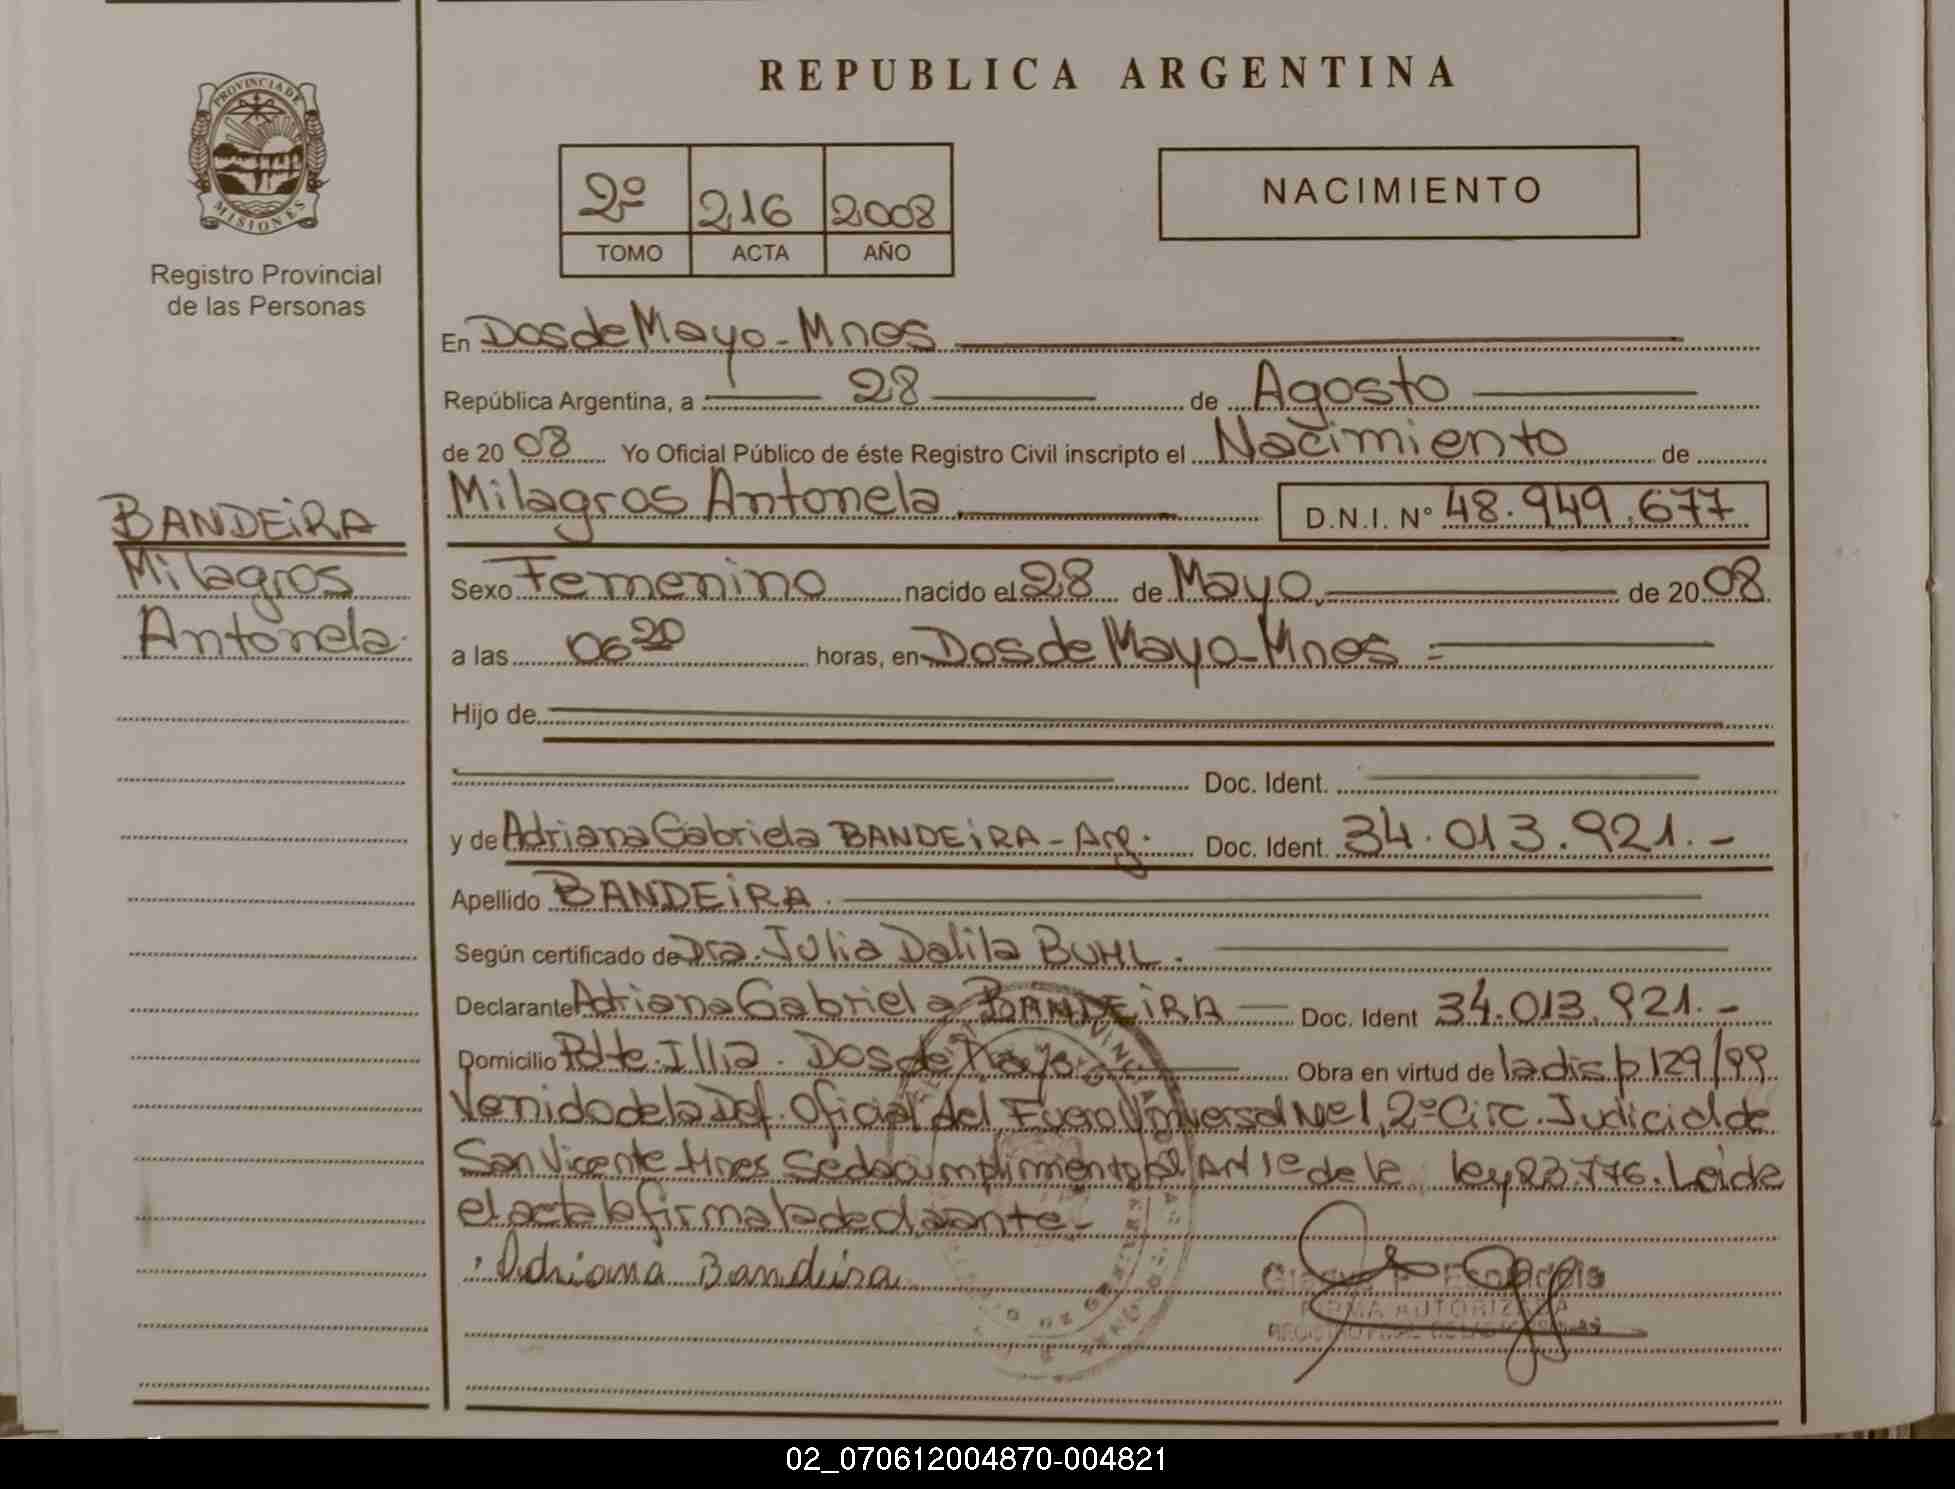 REPUBLICA ARGENTINA
PROVINCIA DE
MISIONES
Registro Provincial
de las Personas
2º 216 2008
TOMO ACTA AÑO
NACIMIENTO
BANDEiRA
Milagros
Antonela.
En Dos de Mayo - Mnes
República Argentina, a 28 de Agosto
de 20 08 Yo Oficial Público de éste Registro Civil inscripto el Nacimiento de
Milagros Antonela D.N.I. N° 48.949.677
Sexo Femenino nacido el 28 de Mayo de 20 08
a las 06 20 horas, en Dos de Mayo - Mnes
Hijo de
Doc. Ident.
y de Adriana Gabriela BANDEiRA - Arg. Doc. Ident. 34.013.921.-
Apellido BANDEiRA
Según certificado de Dra. Julia Dalila BUHL.
Declarante Adriana Gabriela BANDEiRA Doc. Ident 34.013.921.-
Domicilio Pdte. Illia. Dos de Mayo Obra en virtud de la disp 129/99
Venido de la Def. Oficial del Fuero Universal Nº 1, 2º Circ. Judicial de
San Vicente Mnes Se da cumplimiento al Art 1º de la ley 23.776. Leida
el acta la firma la declarante-
Adriana Bandeira
FIRMA AUTORIZADA
02_070612004870-004821